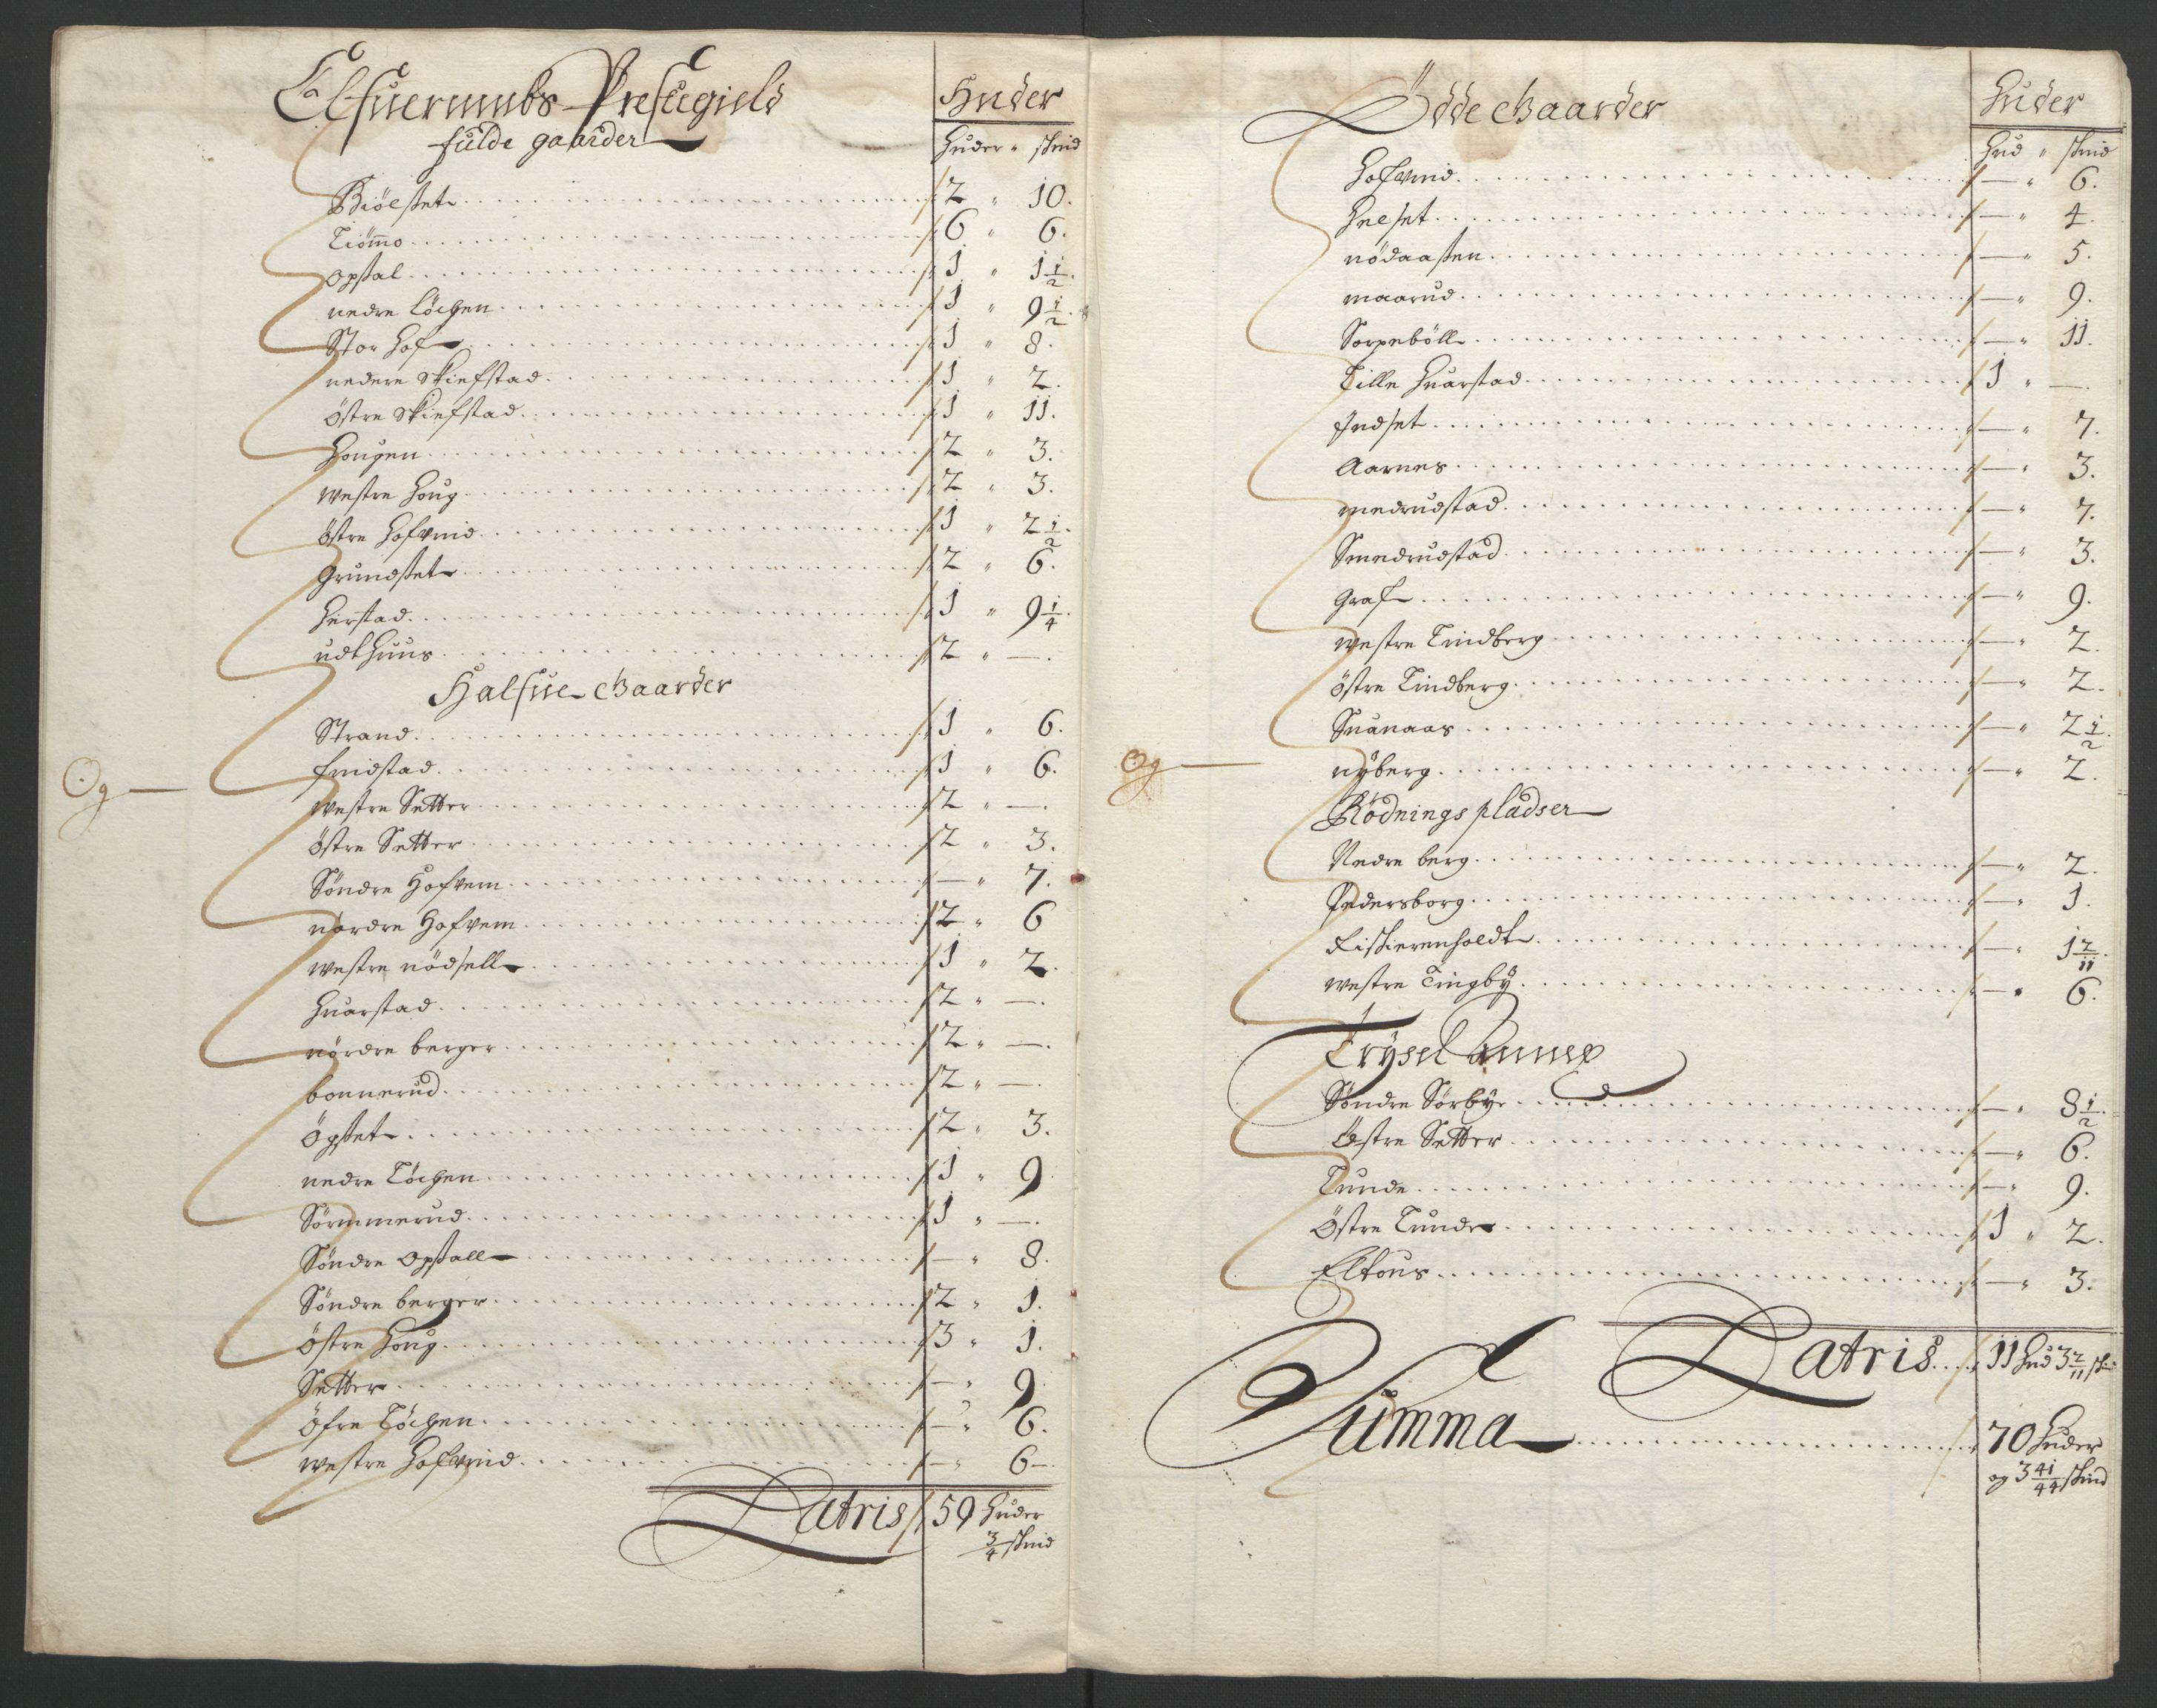 Elfuerumbs Prestegield
fulde gaarder
Huder
Huder " skind
Biölset 2 " 10.
Tiömo 6 " 6.
opsal 1 " 1 1/2.
nedre Löchen 1 " 9 1/2.
Stor Hof 1 " 8.
nedere Skiefstad 1 " 2.
östre Skiefstad 1 " 11.
Hougen 2 " 3.
westre Houg 2 " 3.
östre Hofwind 1 " 2 1/2.
Grundset 2 " 6.
Herstad 1 " 9 1/4.
udthuus 2 " —.
Halfue Gaarder
Strand 1 " 6.
findstad 1 " 6.
Og —
westre Setter 2 " —.
östre Setter 2 " 3.
Söndre Hofvem — " 7.
nordre Hofvem 2 " 6
westre nödsell 1 " 2.
Huarstad 2 " —.
nördre berger 2 " —.
bonnerud 2 " —.
Ögset 2 " 3.
nedre Löchen 1 " 9
Sörmmerud 1 " —.
Söndre opsall — " 8.
Söndre berger 2 " 1.
östre Houg 3 " 1.
Setter — " 9
Öfre Löchen — " 6.
westre Hofwind — " 6 —.
Latris 59 Huder
3/4 skind
Ödde Gaarder
Huder
Hud " skind
Hofwind — " 6.
Helset — " 4.
nödaasen — " 5.
maarud — " 9.
Sorpeböll — " 11.
Lille Huarstad 1 " —.
Indset — " 7.
Aarnes — " 3.
medrudstad — " 7.
Smedrudstad — " 3.
Graf — " 9.
westre Lindberg — " 2.
östre Lindberg — " 2.
Suanaas — " 2 1/2.
Og —
nyberg — " 2.
Rödnings pladser
Nedre berg — " 2.
Pedersborg — " 1.
Fiskierenholdt — " 1 2/11.
westre Tingby — " 6.
Trysel Annex
Söndre Sörbye — " 8 1/2.
Östre Setter — " 6.
Lunde — " 9.
Östre Lunde 1 " 2.
Eltous — " 3.
Latris 11 Hud 3 2/11 ski
Summa 70 Huder
og 3 41/44 skind